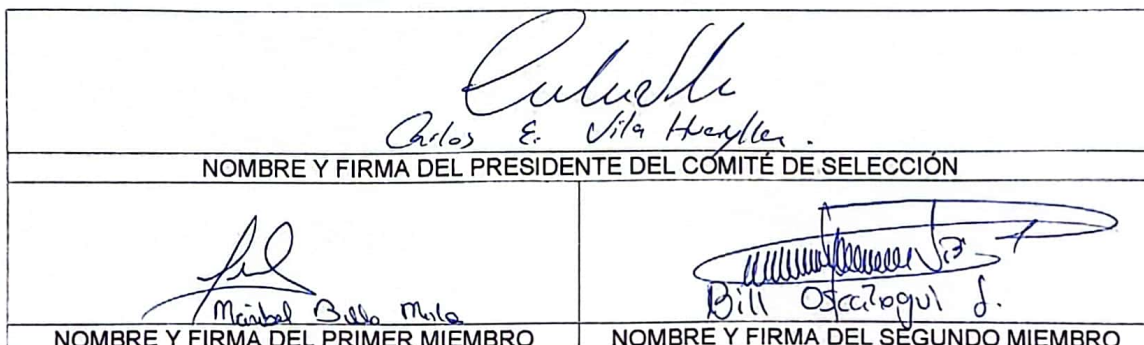 Carlos E. Vila Huaylla.
NOMBRE Y FIRMA DEL PRESIDENTE DEL COMITÉ DE SELECCIÓN
Maribel Bello
Bill
NOMBRE Y FIRMA DEL PRIMER MIEMBRO
NOMBRE Y FIRMA DEL SEGUNDO MIEMBRO